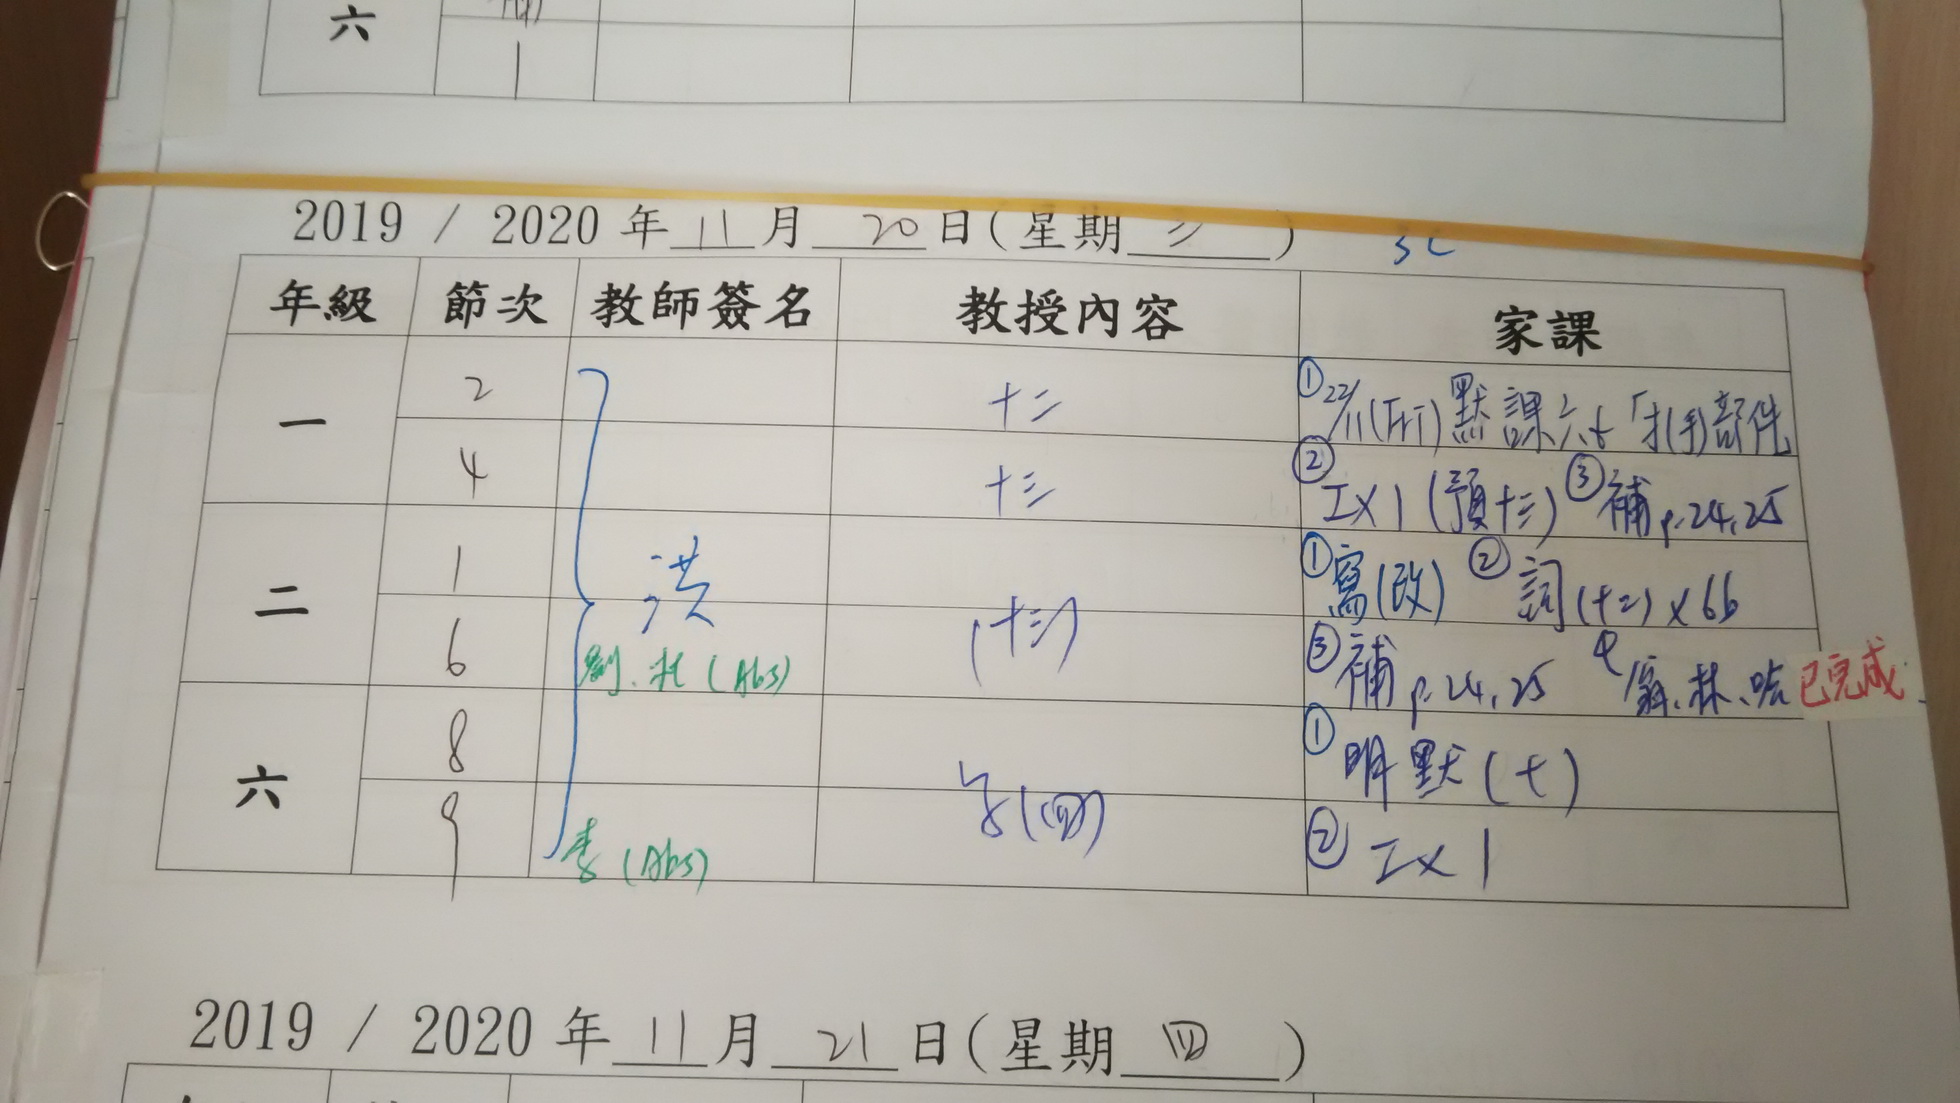 六
2019 / 2020 年 11 月 20 日(星期 三 )
年級 節次 教師簽名 教授內容 家課
一 2 十二 ①22/11(Fri) 默課六+「扌(手)部件
4 十三 ②工x1(預十三) ③補p.24,25
二 1 洪 ①寫(改) ②詞(十二)x6b
6 劉、杜(Abs) (十三) ③補p.24,25 已完成
六 8 ①明默(七)
9 李(Abs) (四) ②工x1
2019 / 2020 年 11 月 21 日(星期 四 )